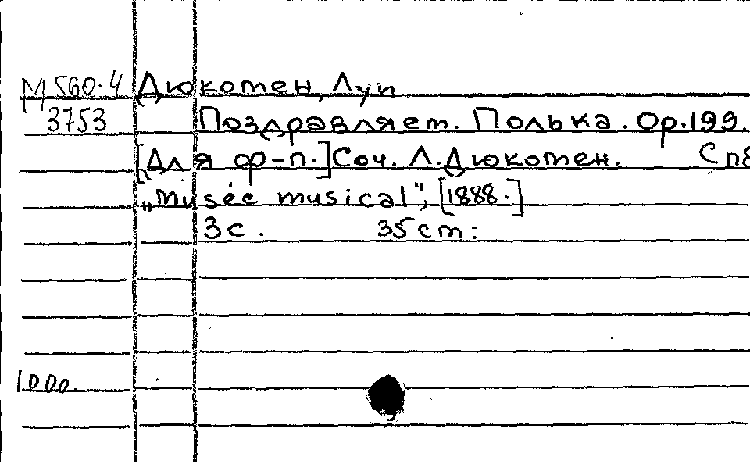 М 560.4 Дюкотен, Луи
3753 Поздравляем. Полька. Ор.199.
[Для ф-п.] Соч. Л. Дюкотен. Спб
„Musée musical", [1888.]
3 с. 35 cm:
1000.